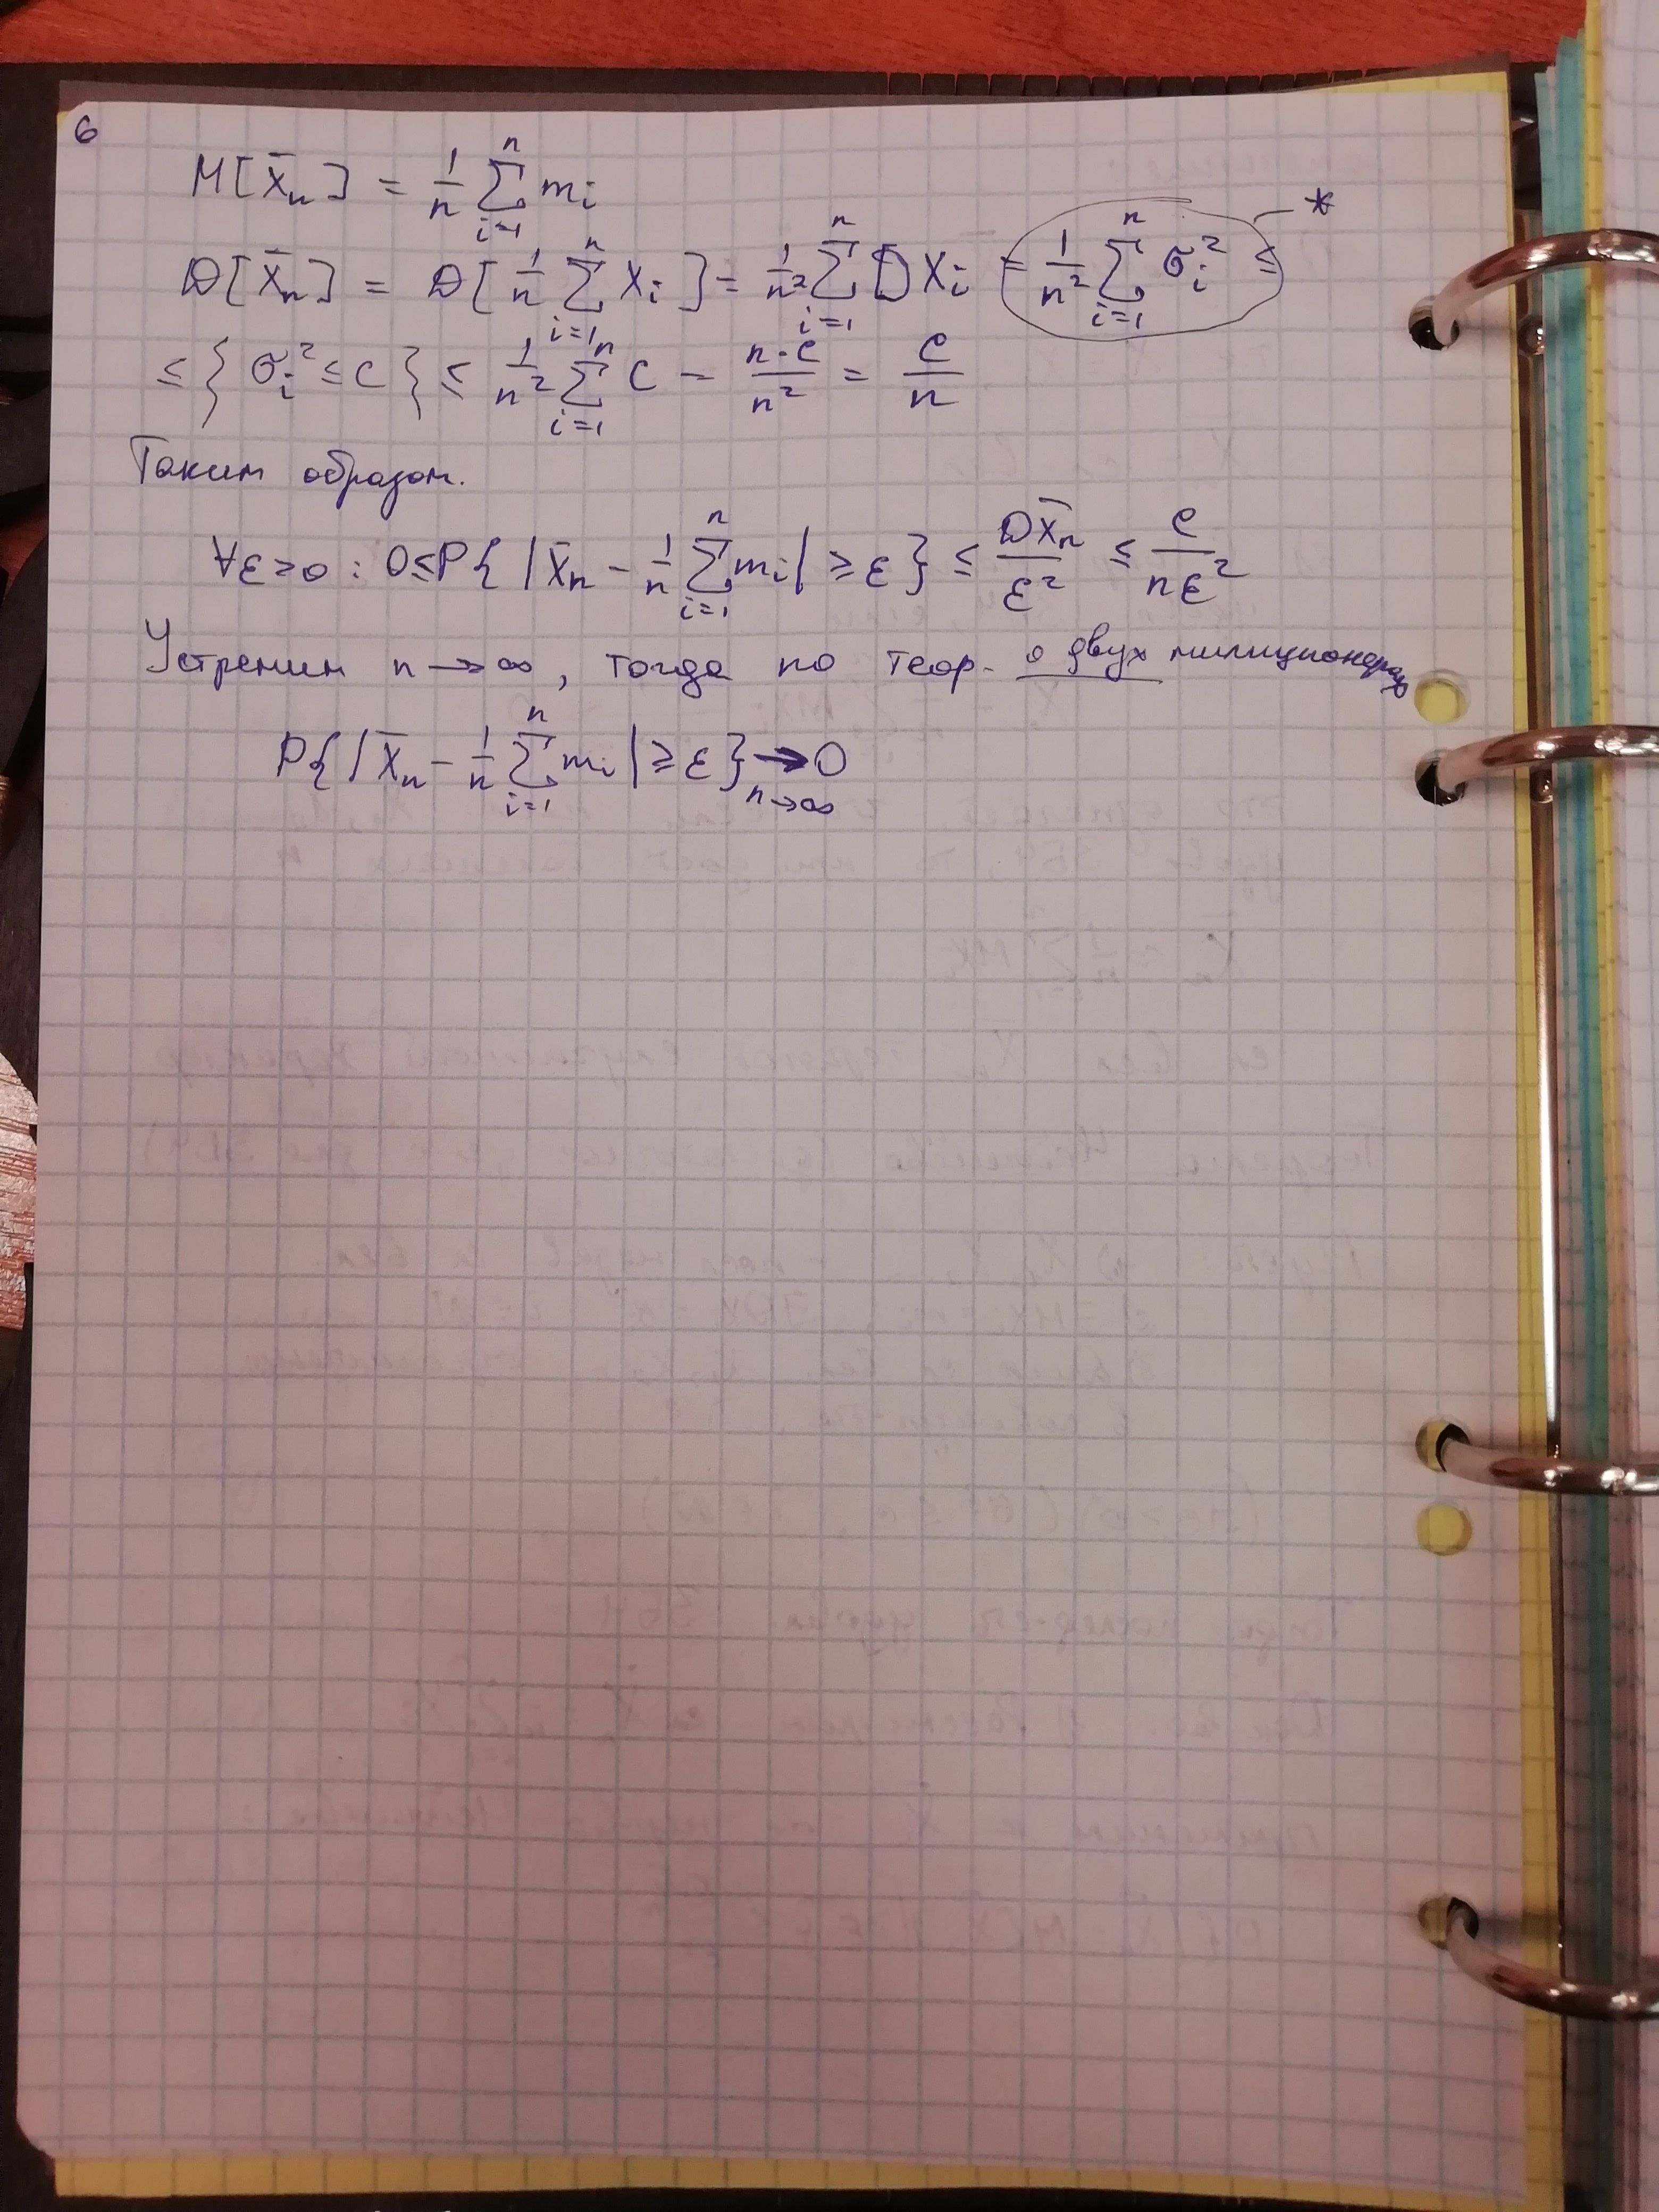 6
M[X̄ₙ] = 1/n ∑_{i=1}^{n} mᵢ
D[X̄ₙ] = D[1/n ∑_{i=1}^{n} Xᵢ] = 1/n² ∑_{i=1}^{n} DXᵢ = 1/n² ∑_{i=1}^{n} σᵢ² ≤ *
≤ {σᵢ² ≤ C} ≤ 1/n² ∑_{i=1}^{n} C = n·C/n² = C/n
Таким образом.
∀ε>0 : 0 ≤ P{|X̄ₙ − 1/n ∑_{i=1}^{n} mᵢ| ≥ ε} ≤ DX̄ₙ/ε² ≤ C/nε²
Устремим n → ∞, тогда по теор. о двух милиционерах
P{|X̄ₙ − 1/n ∑_{i=1}^{n} mᵢ| ≥ ε} →_{n→∞} 0